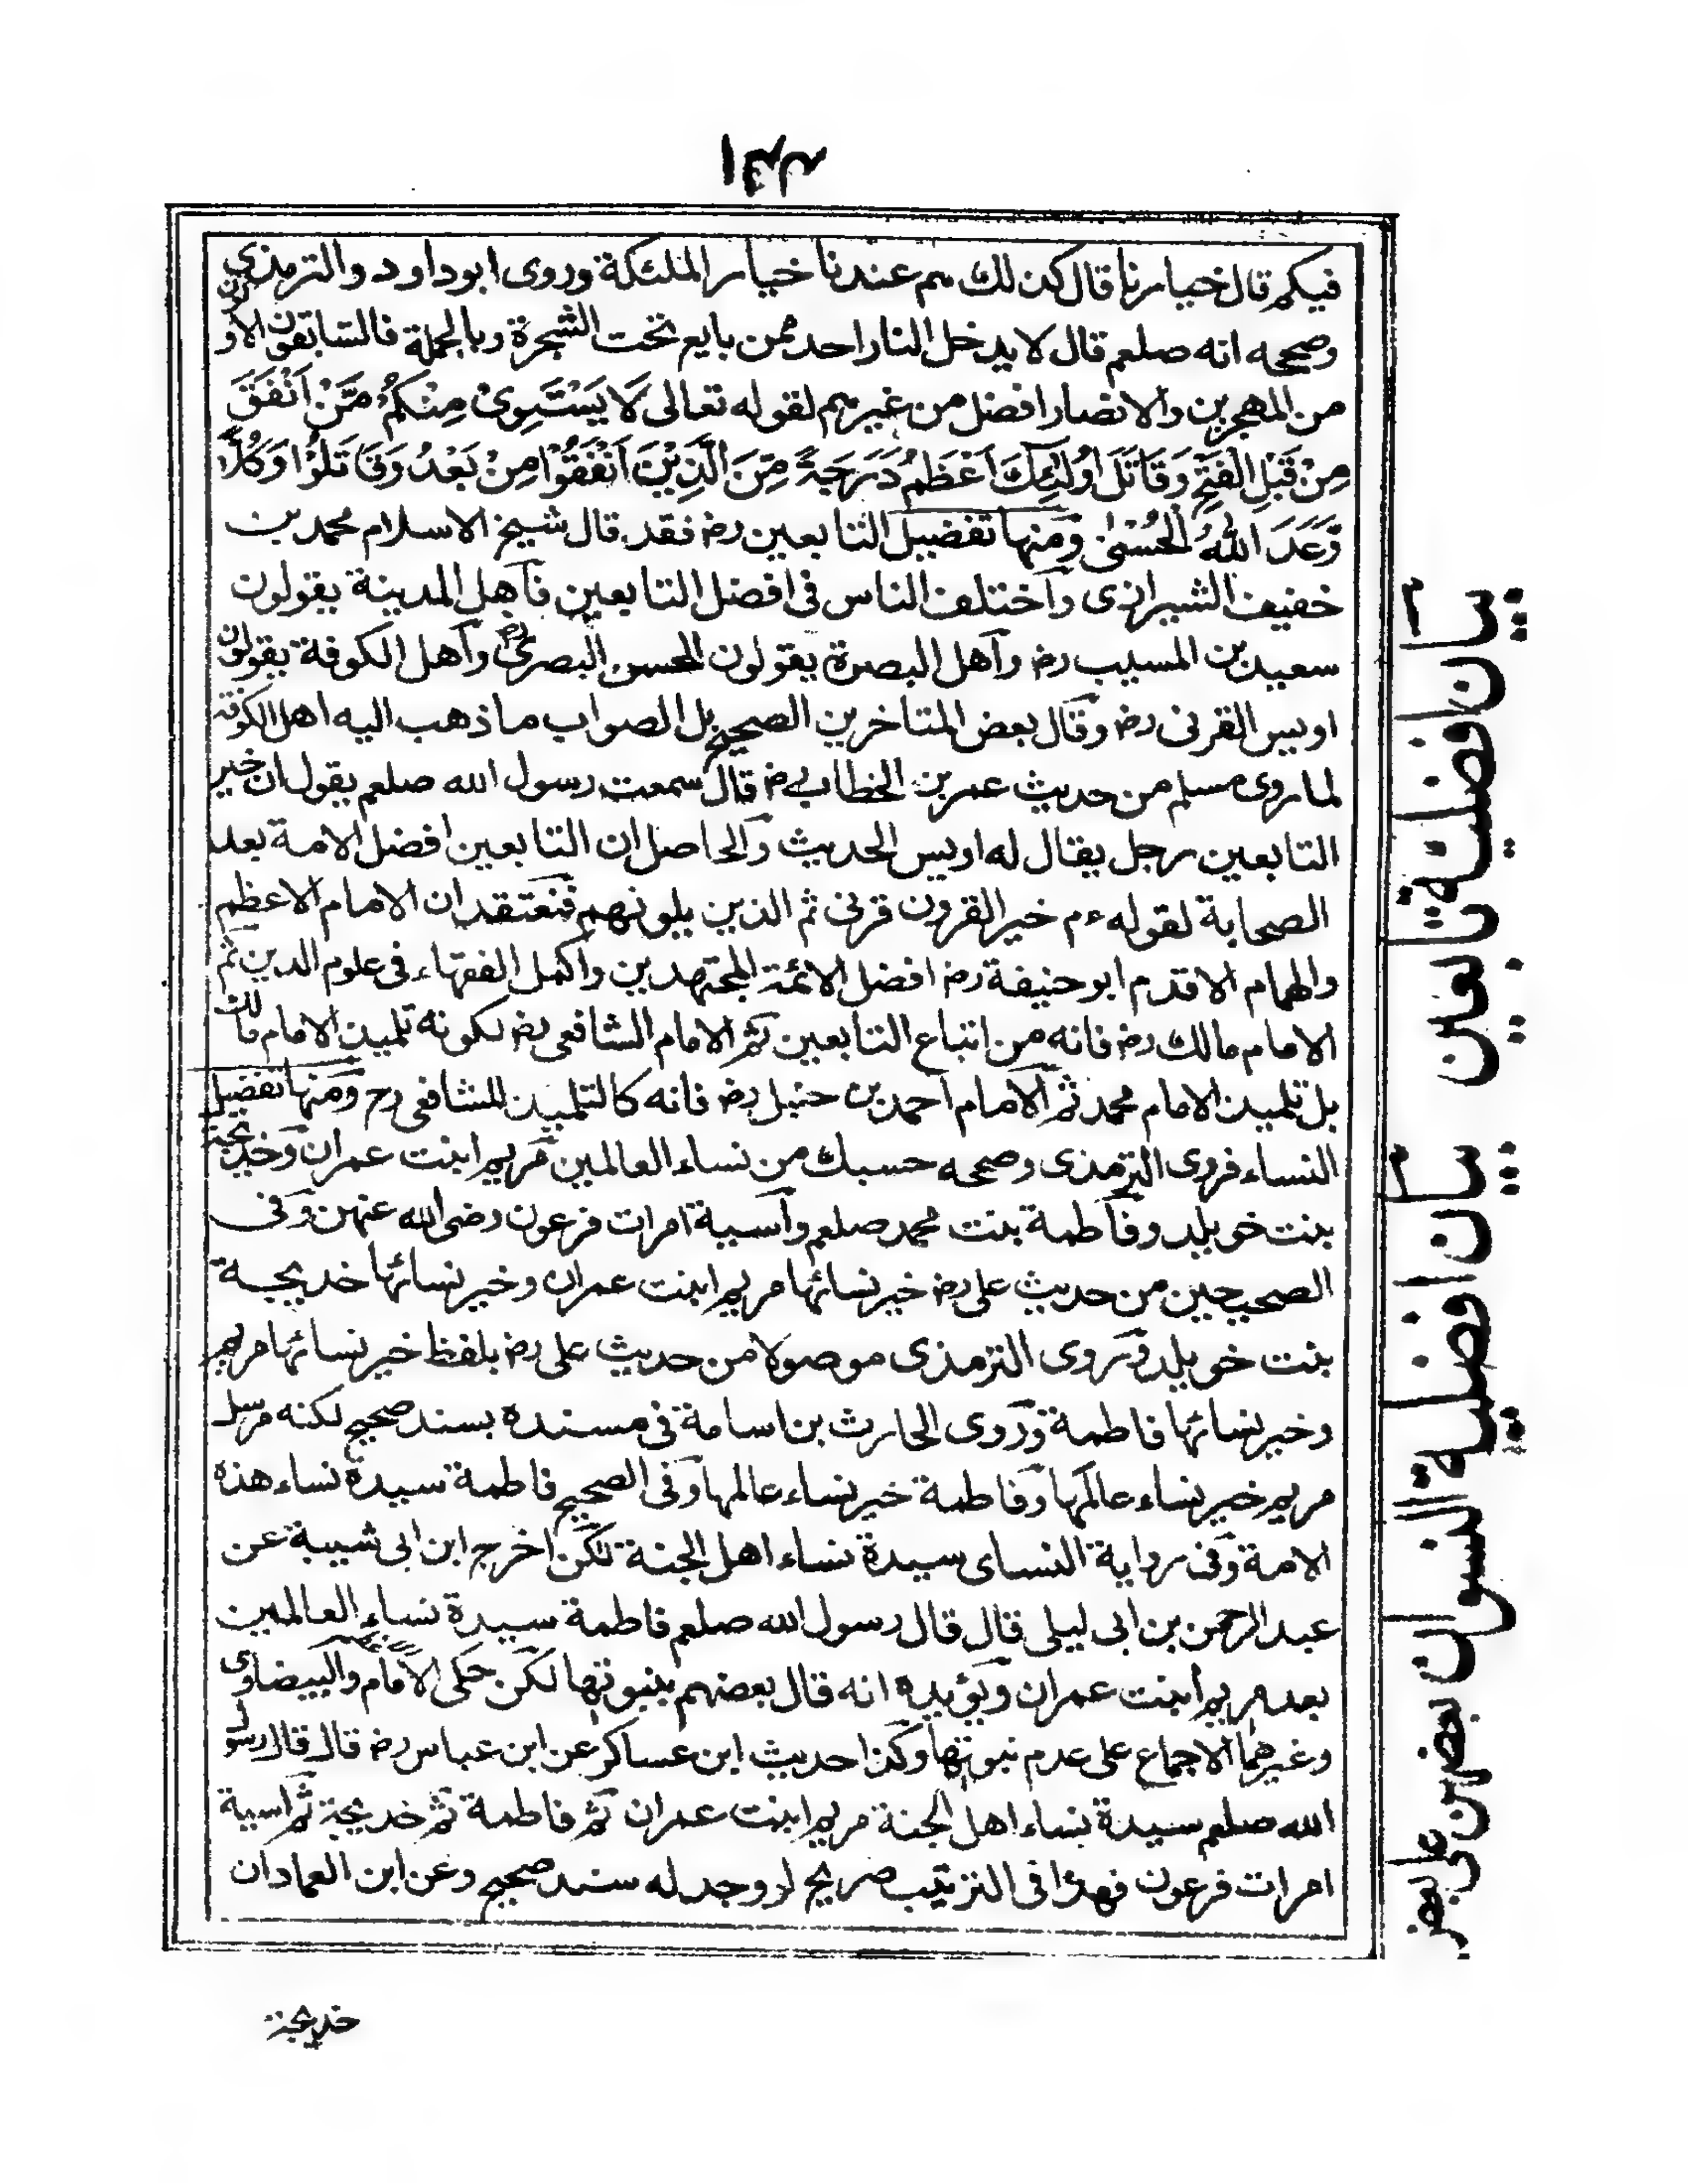 فيكم قال خيارنا قال كذلك هم عندنا خيار الملئكة وروى ابو داود والترمذي
وصححه انه صلعم قال لا يدخل النار احد ممن بايع تحت الشجرة وبالجملة فالسابقون الاولون
من المهجرين والانصار افضل من غيرهم لقوله تعالى لَا يَسْتَوِىْ مِنْكُمْ مَّنْ اَنْفَقَ
مِنْ قَبْلِ الْفَتْحِ وَقَاتَلَ اُولٰئِكَ اَعْظَمُ دَرَجَةً مِّنَ الَّذِيْنَ اَنْفَقُوْا مِنْ بَعْدُ وَقَاتَلُوْا وَكُلًّا
وَّعَدَ اللّٰهُ الْحُسْنٰى ومنها تفضيل التابعين رض فقد قال شيخ الاسلام محمد بن
خفيف الشيرازى واختلف الناس فى افضل التابعين فاهل المدينة يقولون
سعيد بن المسيب رض واهل البصرة يقولون الحسن البصرى رض واهل الكوفة يقولون
اويس القرنى رض وقال بعض المتاخرين الصحيح بل الصواب ما ذهب اليه اهل الكوفة
لما روى مسلم من حديث عمر بن الخطاب رض قال سمعت رسول الله صلعم يقول ان خير
التابعين رجل يقال له اويس الحديث والحاصل ان التابعين افضل الامة بعد
الصحابة لقوله ءم خير القرون قرنى ثم الذين يلونهم فنعتقد ان الامام الاعظم
والهمام الاقدم ابو حنيفة رض افضل الائمة المجتهدين واكمل الفقهاء فى علوم الدين ثم
الامام مالك رض فانه من اتباع التابعين ثم الامام الشافعى رض لكونه تلميذ الامام مالك
بل تلميذ الامام محمد ثم الامام احمد بن حنبل رض فانه كالتلميذ للشافعى رح ومنها تفضيل
النساء فروى الترمذى وصححه حسبك من نساء العالمين مريم ابنت عمران وخديجة
بنت خويلد وفاطمة بنت محمد صلعم وآسية امرات فرعون رضى الله عنهن وفى
الصحيحين من حديث على رض خير نسائها مريم ابنت عمران وخير نسائها خديجة
بنت خويلد وروى الترمذى موصولا من حديث على رض بلفظ خير نسائها مريم
وخير نسائها فاطمة وروى الحارث بن اسامة فى مسنده بسند صحيح لكنه مرسل
مريم خير نساء عالمها وفاطمة خير نساء عالمها وفى الصحيح فاطمة سيدة نساء هذه
الامة وفى رواية النساى سيدة نساء اهل الجنة لكن اخرج ابن ابى شيبة عن
عبد الرحمن بن ابى ليلى قال قال رسول الله صلعم فاطمة سيدة نساء العالمين
بعد مريم ابنت عمران ويؤيده انه قال بعضهم بنبوتها لكن حكى الامام والبيضاوى
وغيرهما الاجماع على عدم نبوتها وكذا حديث ابن عساكر عن ابن عباس رض قال قال رسول
الله صلعم سيدة نساء اهل الجنة مريم ابنت عمران ثم فاطمة ثم خديجة ثم اسية
امرات فرعون فهذا فى الترتيب صريح لو وجد له سند صحيح وعن ابن العماد ان
بيان افضلية تابعين
بيان افضلية النسوان بعضهن على بعض
خديجة